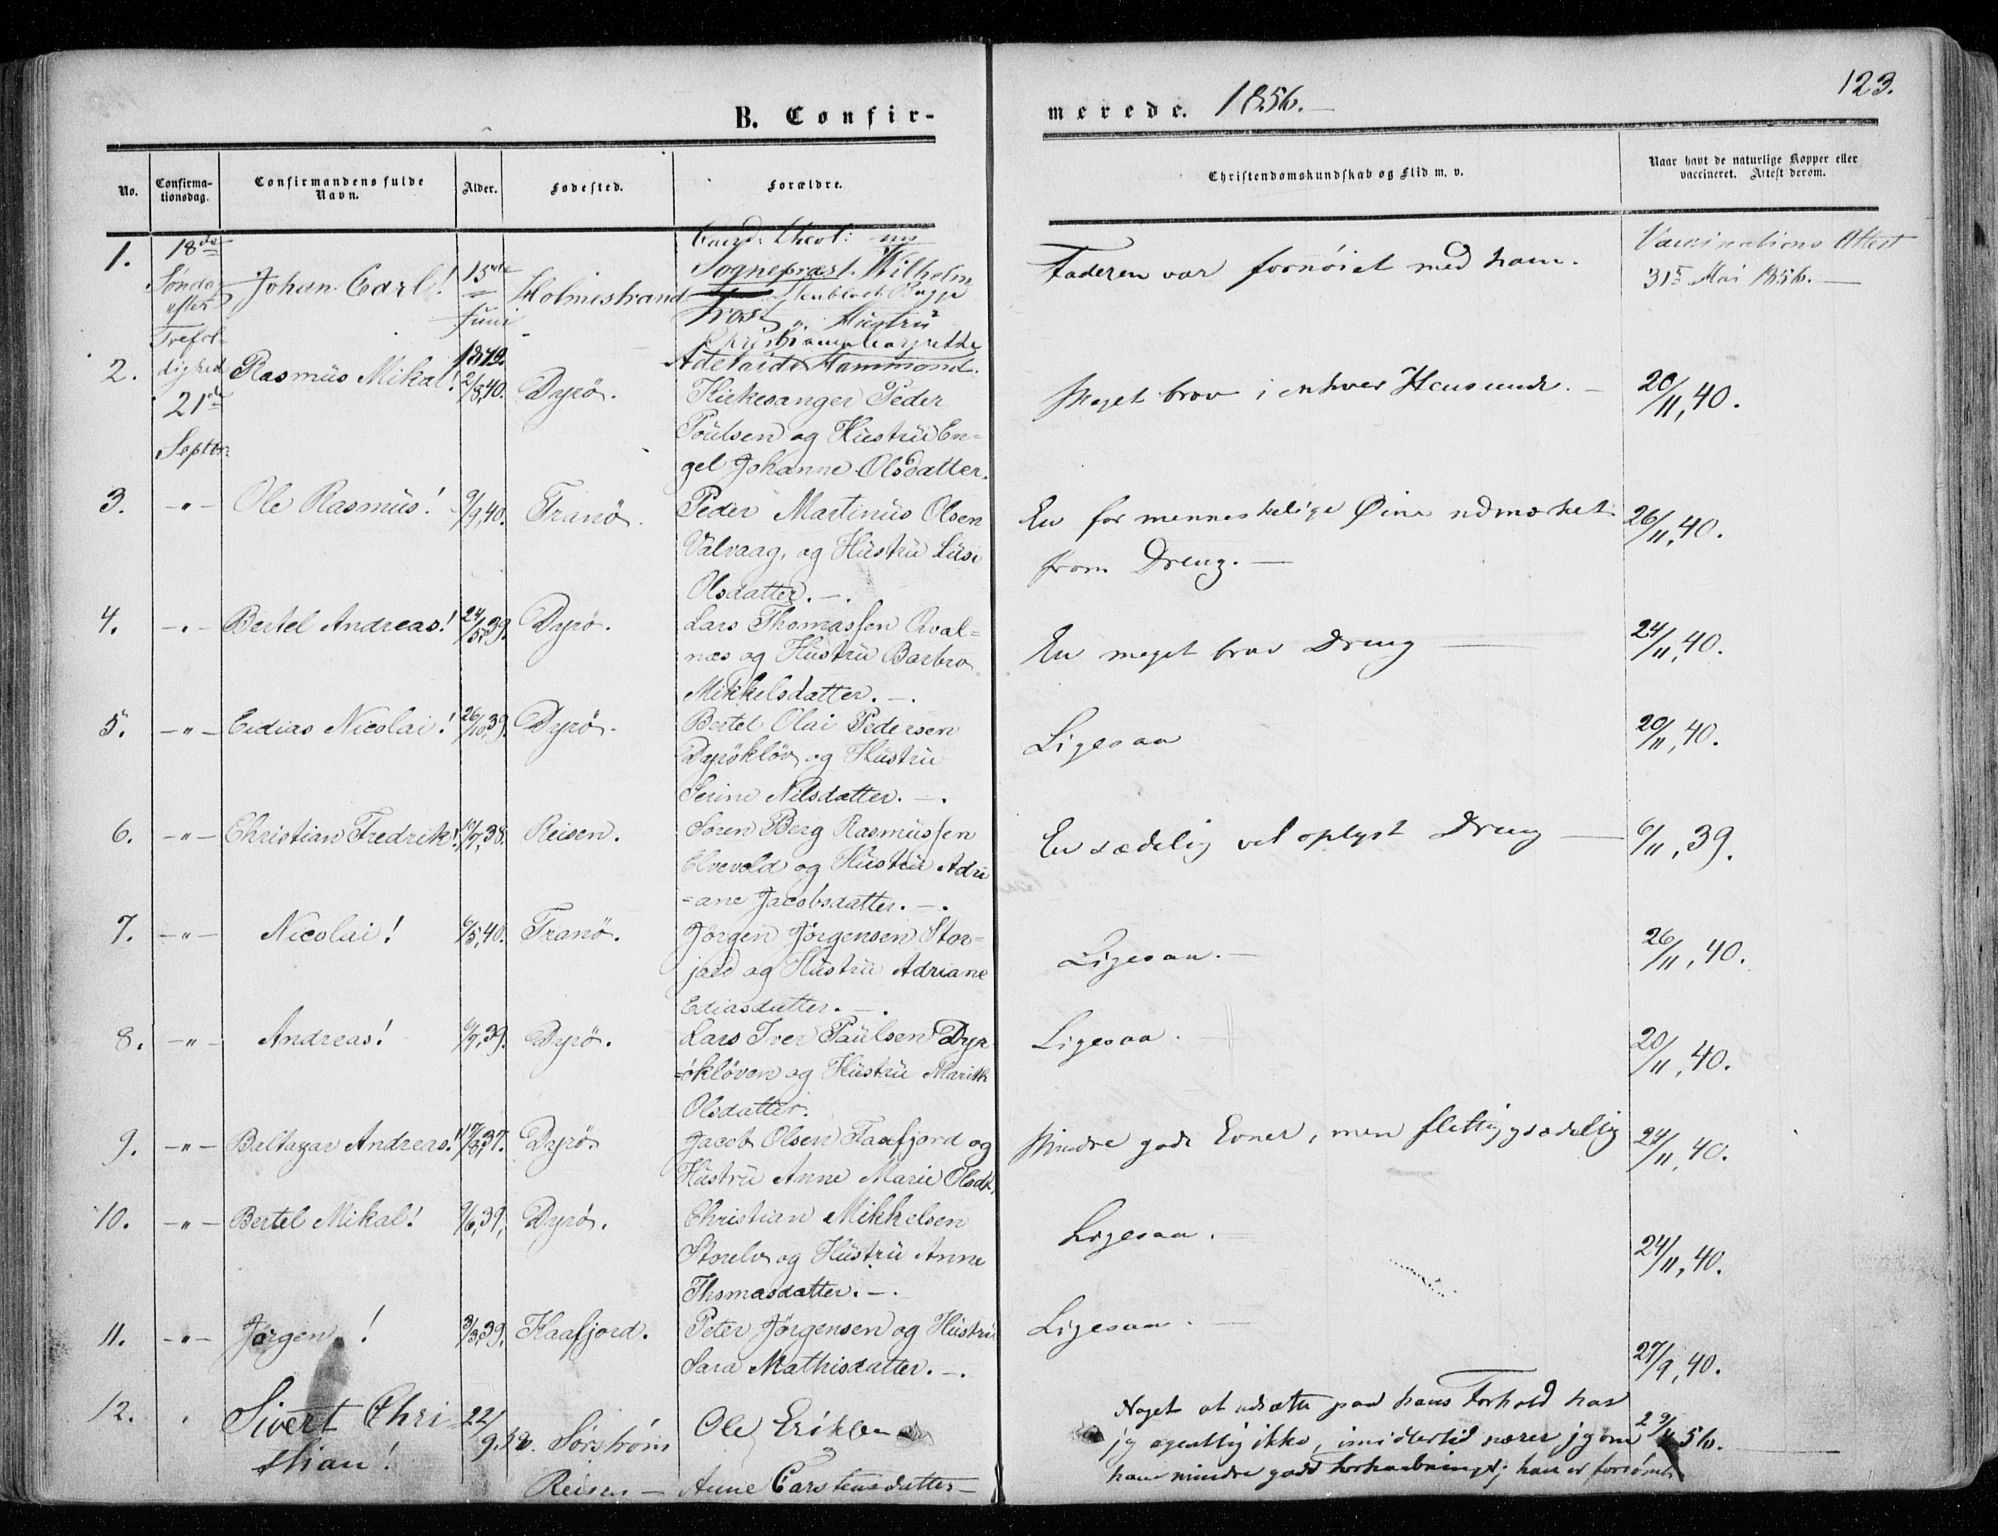 123.
B. Confir-
merede. 1856.
No.
Confirma-
tionsdag.
Confirmandens fulde
Navn.
Alder.
Fødested.
Forældre.
Christendomskundskab og Flid m. v.
Naar havt de naturlige Kopper eller
vaccineret. Attest derom.
1.
18de
Søndag
efter
Trefol-
dighed
21de
Septbr.
Johan Carl!
15
Juni
Holmestrand
Cand: theol:
Sognepræst. Wilhelm
Frost Hustru
Adelaide Hammond.
Faderen var fornøiet med ham.
Vaccinations Attest
31 Mai 1856.
2. Rasmus Mikal! 2/8,40. Dyrö.
Kirkesanger Peder
Poulsen og Hustru En-
gel Johanne Olsdatter.
Meget brav i enhver Henseende.
20/11,40.
3. -"- Ole Rasmus! 9/9,40. Tranö.
Peder Martinus Olsen
Valvaag, og Hustru Lusi
Olsdatter.-.
En for menneskelige Øine udmærket
from Dreng.-
26/11,40.
4. -"- Bertel Andreas! 24/5,39. Dyrö.
Lars Thomassen
næs og Hustru Barbro
Mikkelsdatter.-.
En meget brav Dreng
24/11,40.
5. -"- Edias Nicolai! 26/10,39. Dyrö.
Bertel Olai Pedersen
Dyröklöv og Hustru
Serine Nilsdatter.-.
Ligesaa
20/11,40.
6. -"- Christian Fredrik! 38. Reisen.
Sören Berg Rasmussen
Elvevold og Hustru Adri
-ane Jacobsdatter.-.
En sædelig vel oplyst Dreng
6/11,39.
7. -"- Nicolai! 6/5,40. Tranö.
Jörgen Jörgensen Stor-
jord og Hustru Adriane
Ediasdatter.-.
Ligesaa.-
26/11,40.
8. -"- Andreas! 6/9,39. Dyrö.
Lars Iver Paulsen Dyr
-öklöven og Hustru Marith
Olsdatter.
Ligesaa.
20/11,40.
9. -"- Baltazar Andreas! 37. Dyrö.
Jacob Olsen Faafjord og
Hustru Anne Marie Olsdt.
Mindre gode Evner, men flittig, sædelig
24/11,40.
10. -"- Bertel Mikal! 9/6,39, Dyrö.
Christian Mikkelsen
Storelv og Hustru Anne
Thomasdatter.-.
Ligesaa.
24/11,40.
11. -"- Jörgen! 3/3,39. Kaafjord.
Peter Jörgensen og Hustru
Sara Mathisdatter.-.
Ligesaa.
27/9,40.
12. Sivert Chri
stian!
22/9 Sörströms
Reisen -
Ole Eriksen
Anne Carstensdatter-
Noget at udsætte paa hans Forhold har
jeg egentlig ikke, imidlertid nærer jeg om
ham mindre gode Forhaabninger; han er
56.